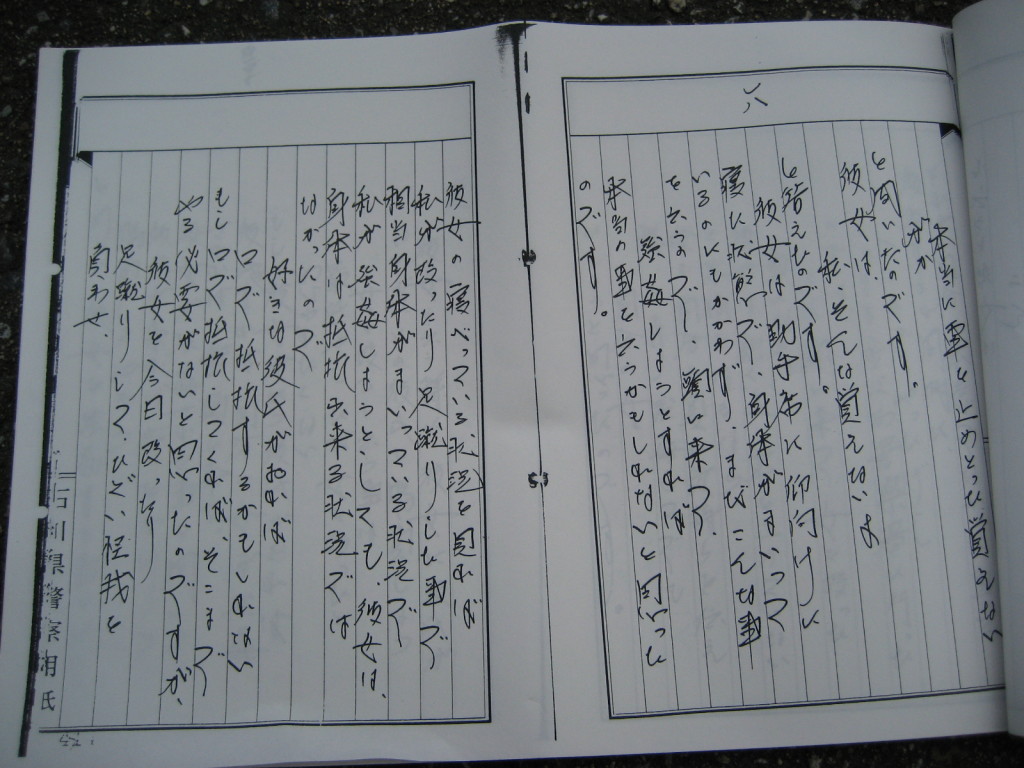 本当に車を止めとった覚えない
か
と聞いたのです。
彼女は、
私、そんな覚えないよ
と答えたのです。
彼女は助手席に仰向けに
寝た状態で、身体がまいって
いるのにもかかわず、まだこんな事
を言うので、
強姦しようとすれば
本当の事を言うかもしれないと思った
のです。
彼女の寝べっている状況を見れば
私が殴ったり足蹴りした事で
相当身体がまいっている状況で
私が強姦しようとしても、彼女は、
身体は抵抗出来る状況では
なかったので
好きな彼氏がおれば
口で抵抗するかもしれない
もし口で抵抗してくれば、そこまで
やる必要がないと思ったのですが、
彼女を今日殴ったり
足蹴りして、ひどい怪我を
負わせ、
石川県警察